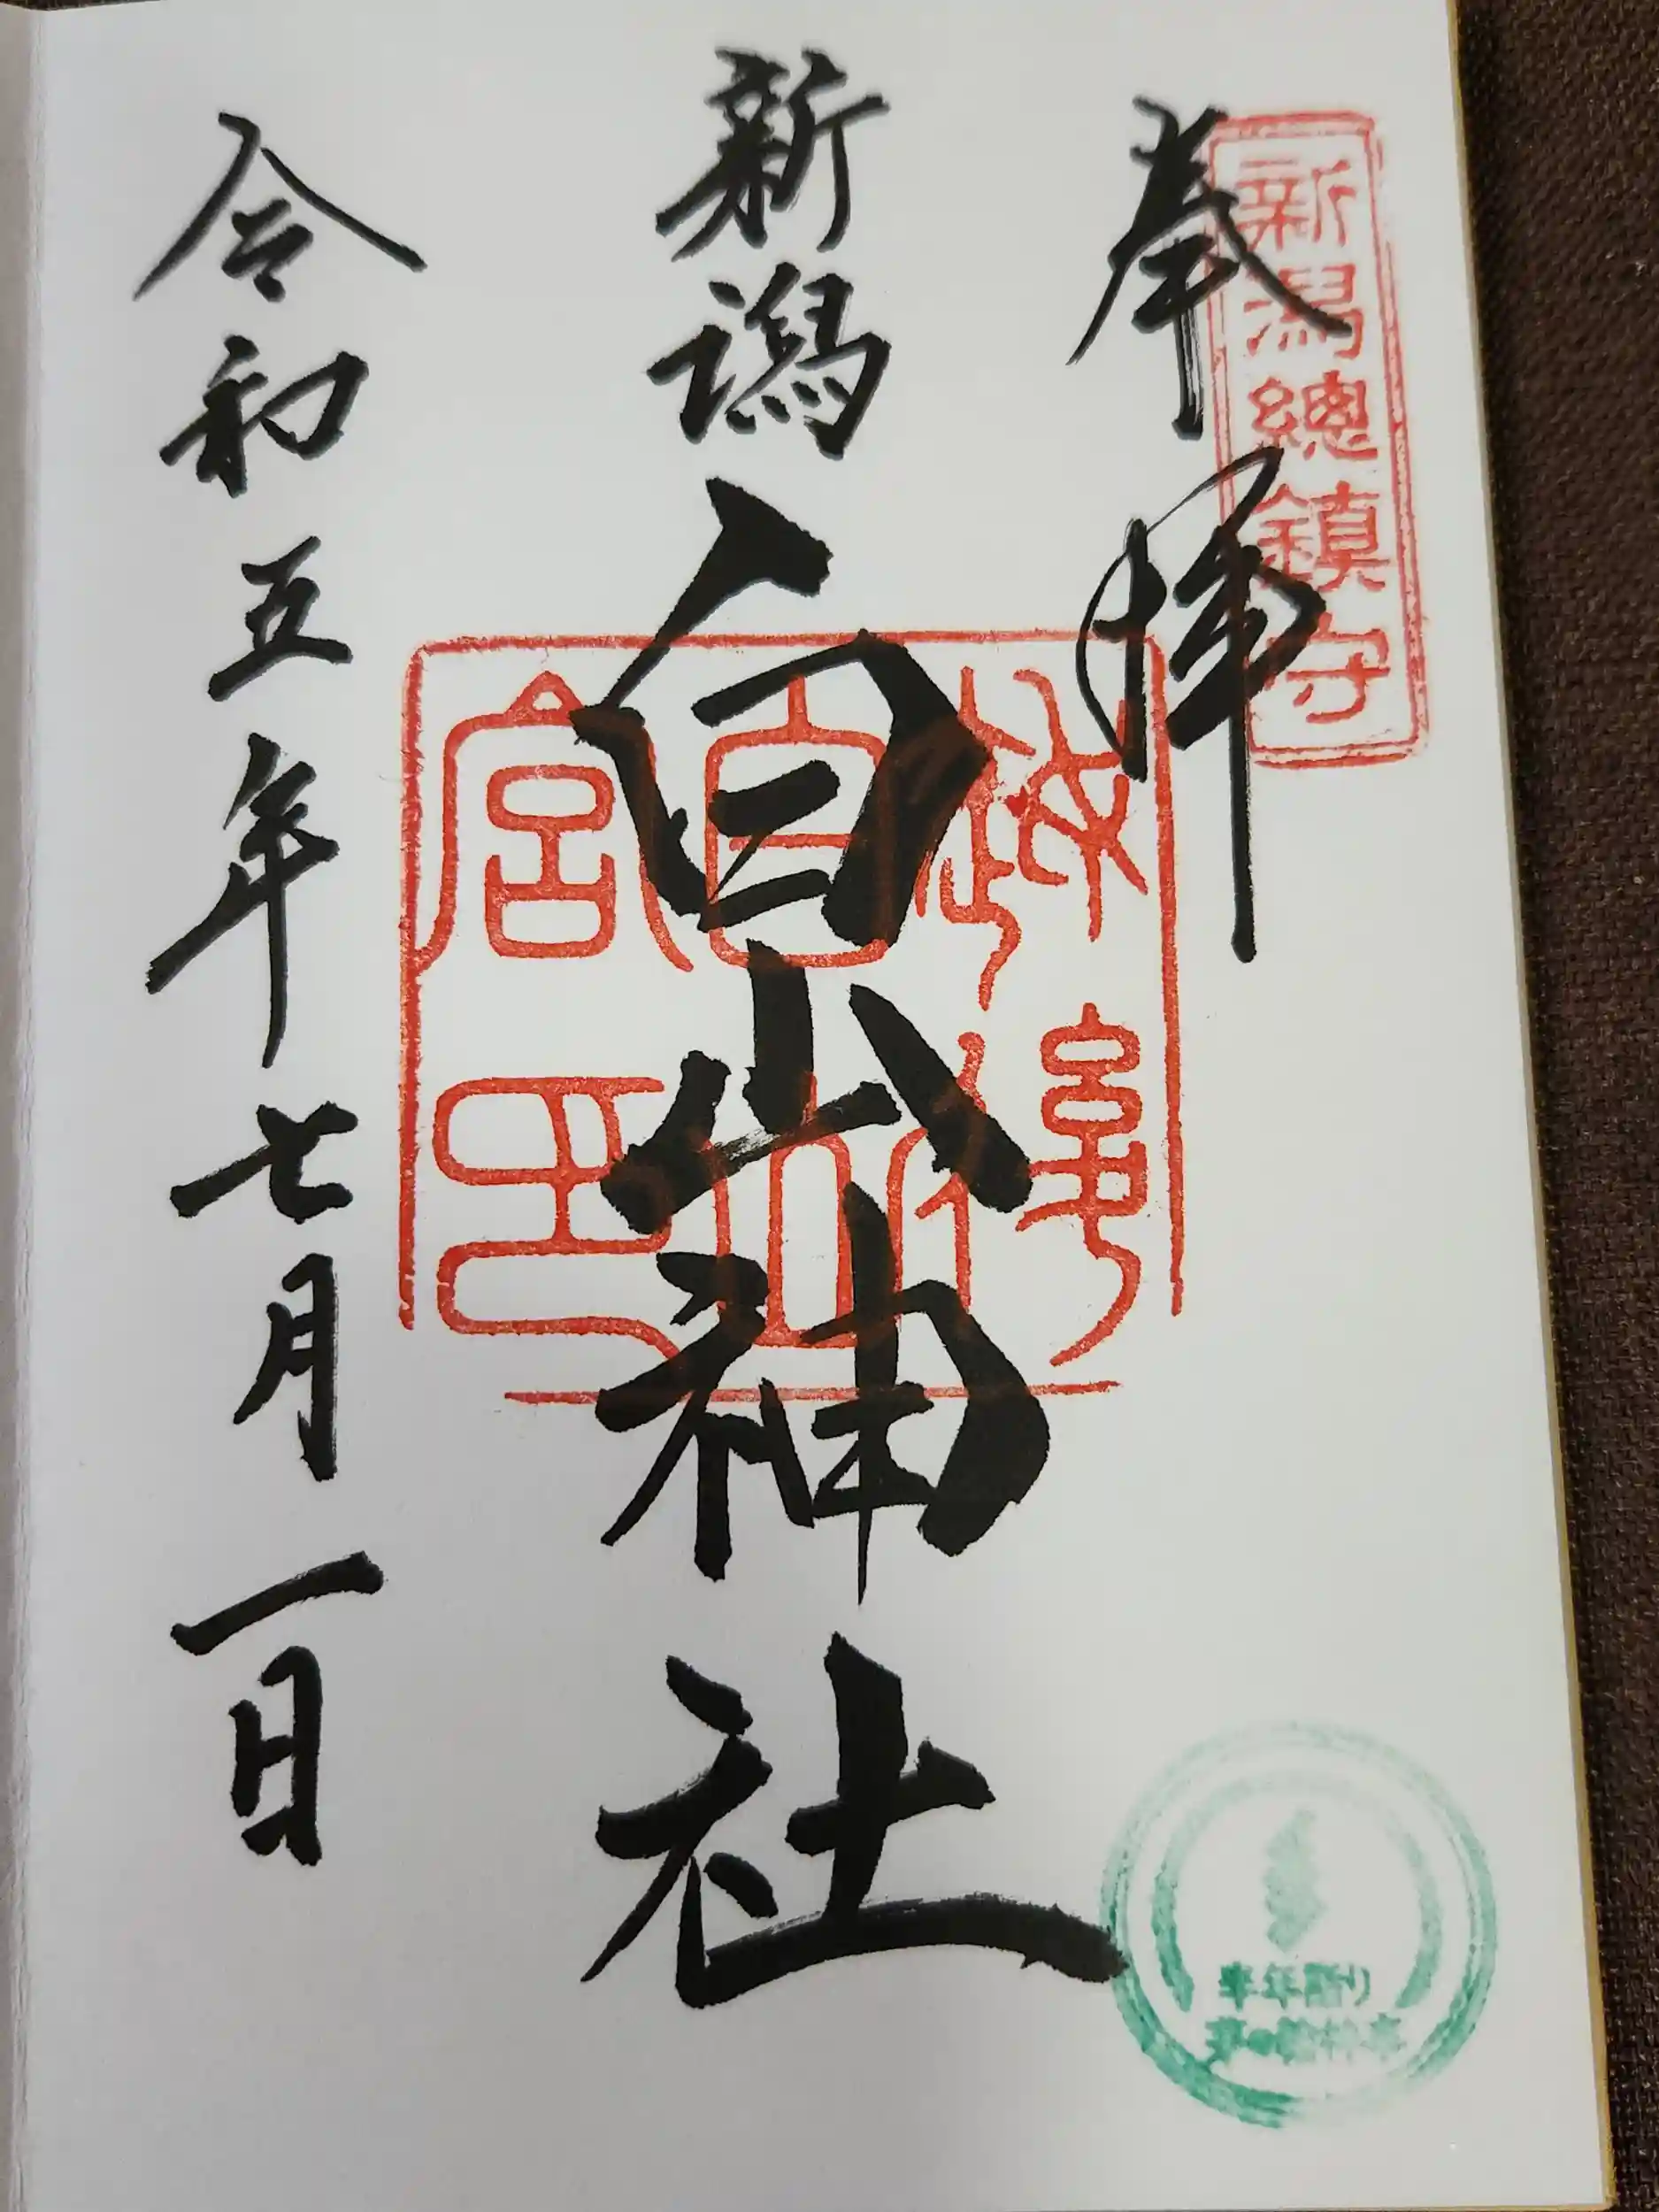 奉拝
新潟總鎮守
新潟白山神社
越後
白山
宮印
令和五年七月一日
半年詣り
茅の輪神事